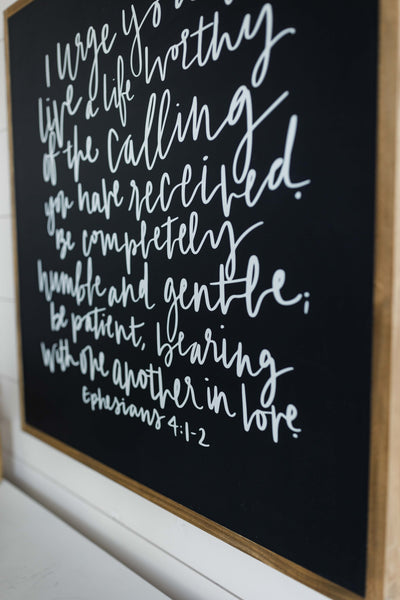 I urge you
live a life worthy
of the calling
you have received.
Be completely
humble and gentle;
be patient, bearing
with one another in love.
Ephesians 4:1-2